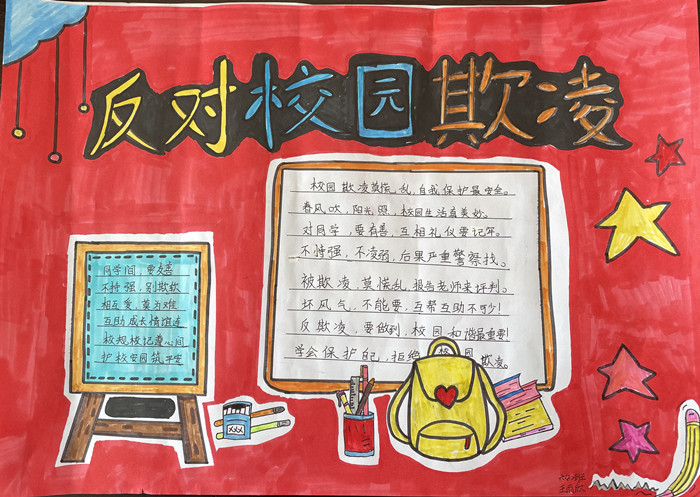 反对校园欺凌
校园欺凌莫慌乱,自我保护最安全。
春风吹,阳光照,校园生活真美妙。
对同学,要有善,互相礼仪要记牢。
不恃强,不凌弱,后果严重警察找。
被欺凌,莫慌乱,报告老师来评判。
坏风气,不能要,互帮互助不可少!
反欺凌,要做到,校园和谐最重要!
学会保护自己,拒绝校园欺凌。
同学间,要友善
不恃强,别欺软
相互爱,莫为难
互助成长情谊连
校规校记心间
护校安园筑平安
XXX